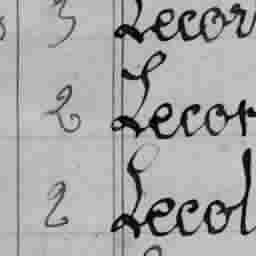 3 Lecor
2 Lecor
2 Lecol